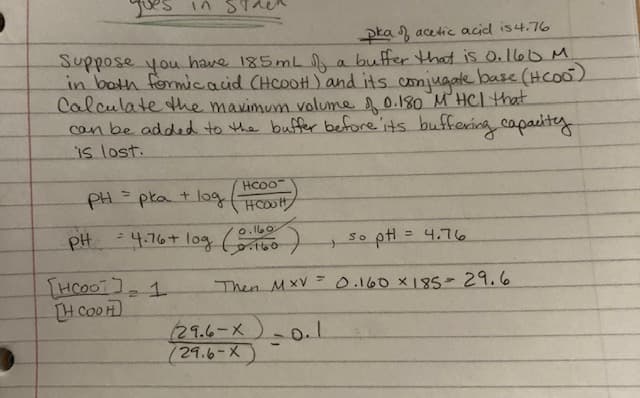 goes in
pka of acetic acid is 4.76
Suppose you have 185 mL of a buffer that is 0.160 M
in both formic acid (HCOOH) and its conjugate base (HCOO⁻)
Calculate the maximum volume of 0.180 M HCl that
can be added to the buffer before its buffering capacity
is lost.
pH = pka + log (HCOO⁻/HCOOH)
pH = 4.76 + log (0.160/0.160), so pH = 4.76
[HCOO⁻]/[HCOOH] = 1 Then M×V = 0.160 × 185 = 29.6
(29.6-X)/(29.6-X) = 0.1